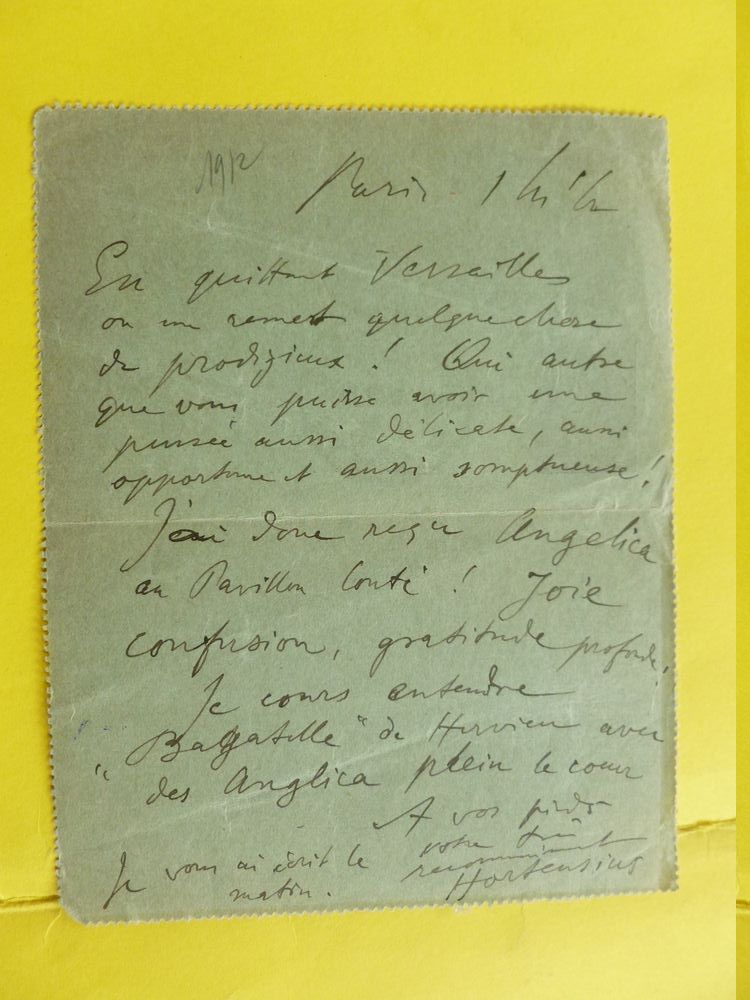 1912
Paris
En quittant Versailles
on me remet quelquechose
de prodigieux ! Qui autre
que vous puisse avoir une
pensée aussi délicate, aussi
opportune et aussi somptueuse !
J'ai donc reçu Angelica
au Pavillon Conti ! Joie
confusion, gratitude profonde !
Je cours entendre
"Bagatelle" de Hervieu avec
des Anglica plein le cœur
A vos pieds
votre très
reconnaissant
Hortensius
Je vous ai écrit le
matin.